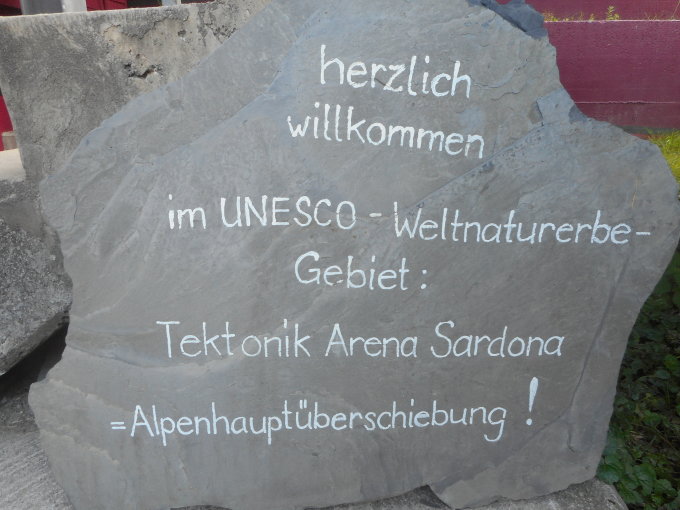 herzlich
willkommen
im UNESCO - Weltnaturerbe-
Gebiet :
Tektonik Arena Sardona
= Alpenhauptüberschiebung !